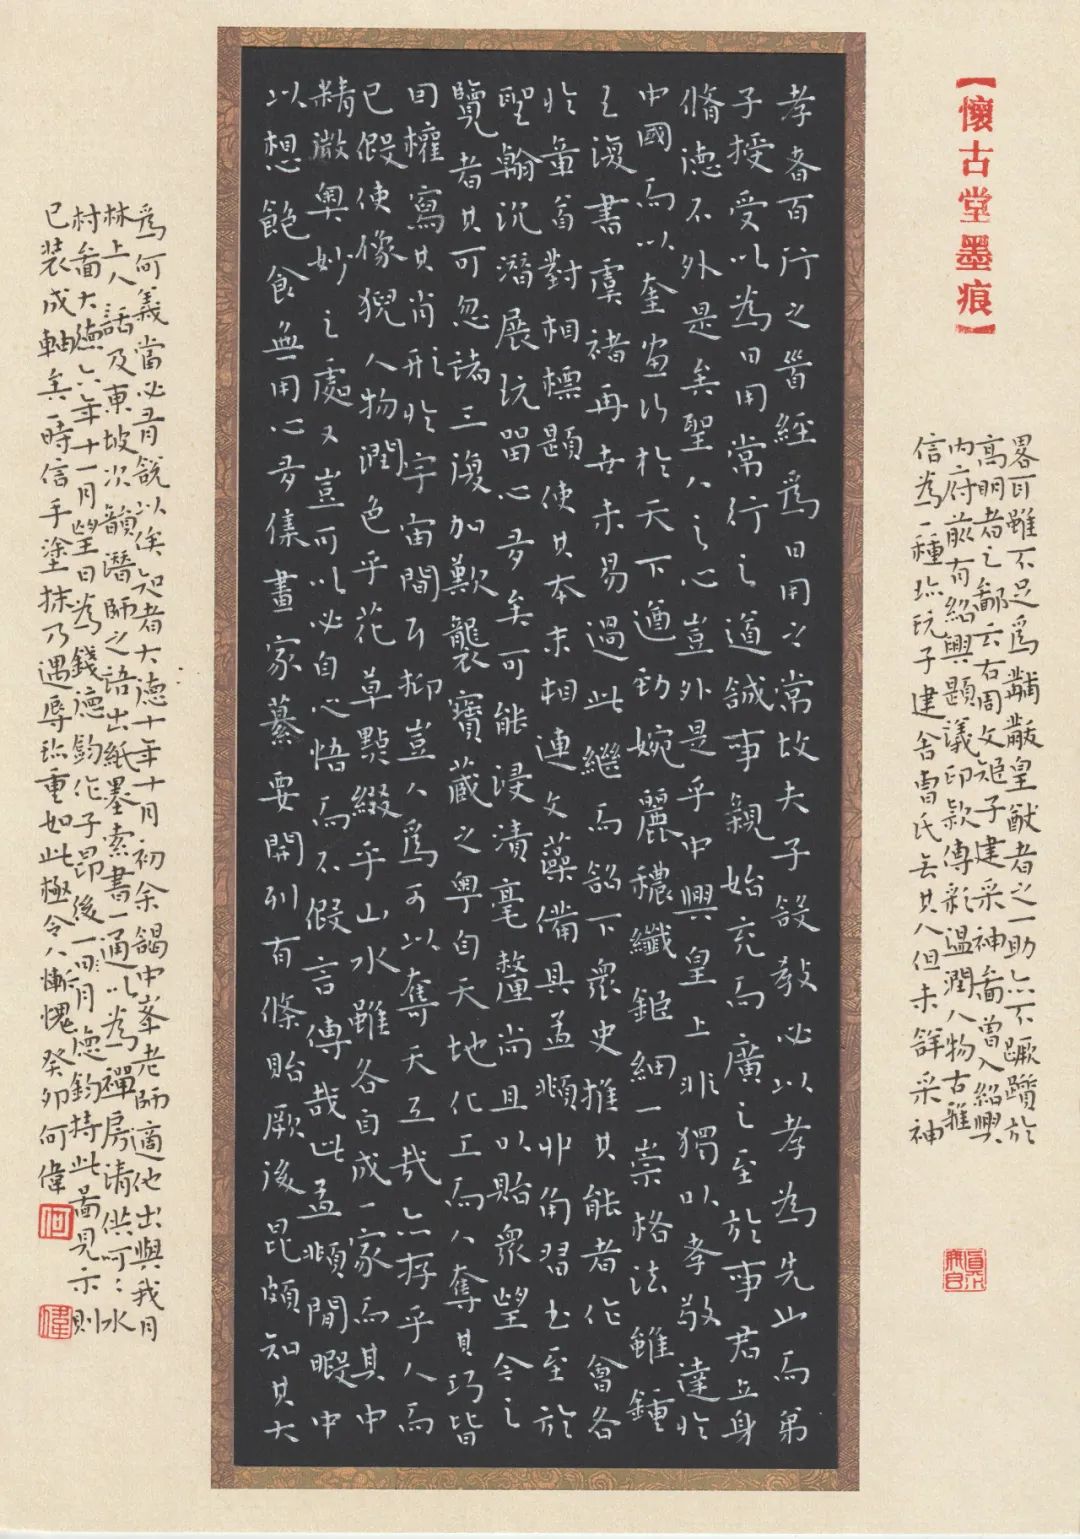 【懷古堂墨痕】
畧可雖不足爲黼黻皇猷者之一助亦不蹶躓於
高明者之鄙云右周文矩子建采神圖曾入紹興
内府前有紹興題議印款傳彩溫潤人物古雅
信為一種珍玩子建舍曹氏去其人但未詳采神
孝者百行之首經爲日用之常故夫子設教必以孝為先山而弟
子授受以為日用常行之道誠事親始充而廣之至於事君立身
脩德不外是矣聖人之心豈外是乎中興皇上非獨以孝敬達於
中國而以奎畫法於天下遒勁婉麗穠纖鉅細一崇格法雖鍾
之復書虞褚再世未易過此繼而詔下眾史推其能者作會各
於章首對相標題使其本末相連文藻備具孟頫非角習書至於
聖翰沉潛展玩留心多矣可能浸漬毫釐尚且以貽眾望令之
覽者其可忽諸三復加歎襲寶藏之粵自天地化工而人奪其巧皆
囘權寫其肖形於宇宙間耳抑豈人爲可以奪天工哉亦存乎人而
已假使像猊人物潤色乎花草點綴乎山水雖各自成一家而其中
精微奧妙之處又豈可以必自心悟而不假言傳哉此孟頫閒暇中
以想飽食無用心多集畫家纂要開列有條貽厥後昆頗知其大
爲何義當必有説以俟知者大德十年十月初余謁中峯老師適他出與我月
林上人話及東坡次韻潛師之語出紙墨索書一通以為禪房清供呵呵水
村畵大德六年十一月望日為錢德鈞作子昂後一月德鈞持此圖見示則
已装成軸矣一時信手塗抹乃遇辱珍重如此極令人慚愧癸卯何偉
何
偉